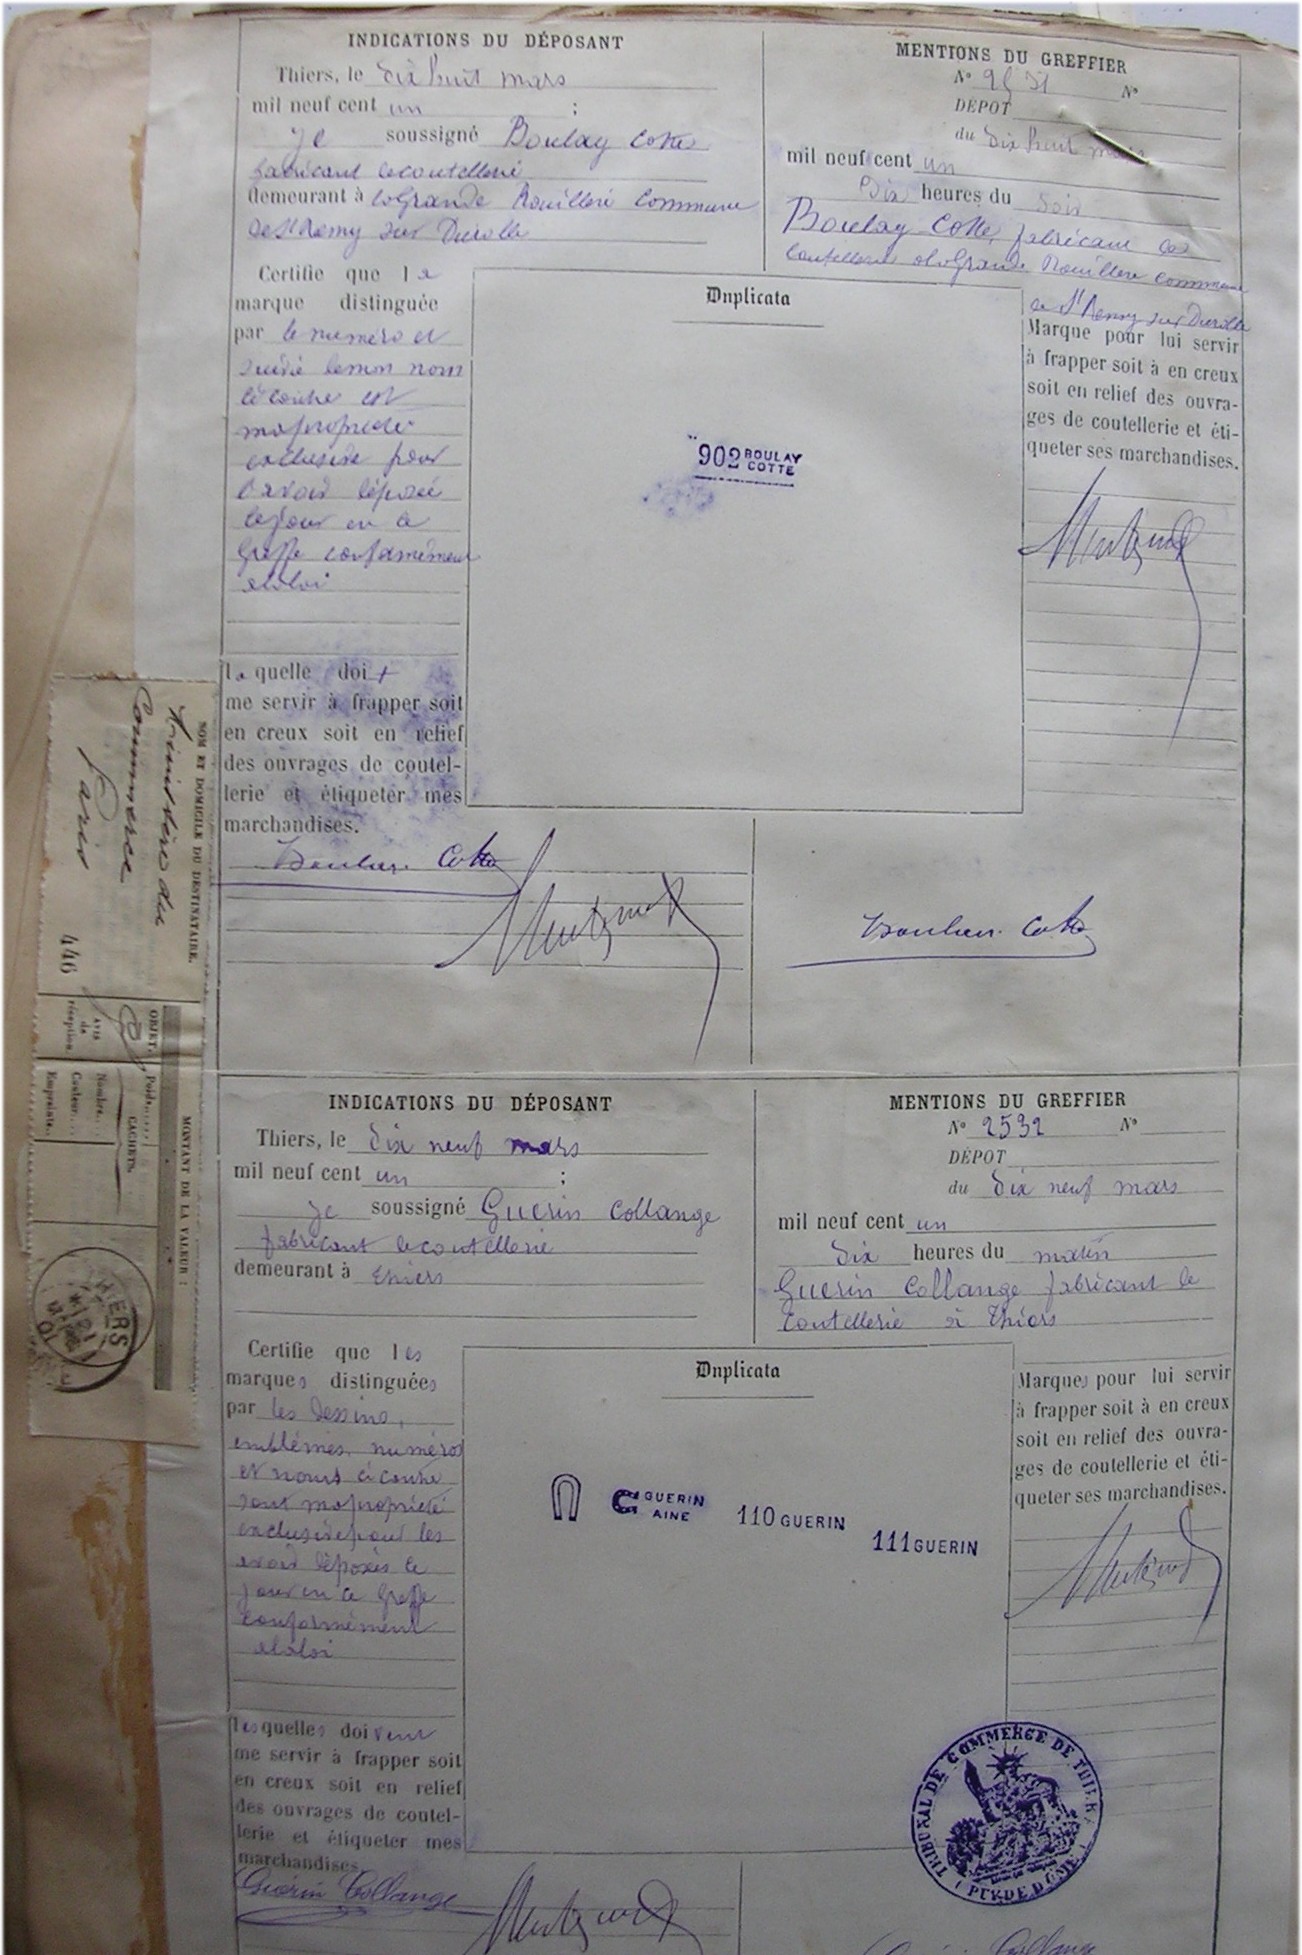 INDICATIONS DU DÉPOSANT
Thiers, le dix huit mars
mil neuf cent un ;
je soussigné Boulay Cotte
fabricant de coutellerie
demeurant à la Grande Rouillere commune
de St Remy sur Durolle
Certifie que la
marque distinguée
par le numéro et
suivi de mon nom
ci contre est
ma propriété
exclusive pour
l'avoir déposée
ce jour en ce
Greffe conformément
à la loi
la quelle doit
me servir à frapper soit
en creux soit en relief
des ouvrages de coutel-
lerie et étiqueter mes
marchandises.
Cotte
MENTIONS DU GREFFIER
N° 2531 N°
DÉPOT
du dix huit mars
mil neuf cent un
Dix heures du soir
Boulay-Cotte, fabricant de
coutellerie à la Grande Rouillere commune
de St Remy sur Durolle
Duplicata
902 BOULAY
COTTE
Marque pour lui servir
à frapper soit à en creux
soit en relief des ouvra-
ges de coutellerie et éti-
queter ses marchandises.
Cotte
NOM ET DOMICILE DU DESTINATAIRE.
Ministère du
Commerce
Paris
446
OBJET.
AVIS
de
réception.
Poids
CACHETS.
Nombre
Couleur
Empreinte
MONTANT DE LA VALEUR :
INDICATIONS DU DÉPOSANT
Thiers, le dix neuf mars
mil neuf cent un ;
je soussigné Guerin Collange
fabricant de coutellerie
demeurant à Thiers
Certifie que les
marques distinguées
par les dessins,
emblémes, numéros
et noms ci contre
sont ma propriété
exclusive pour les
avoir déposés ce
jour en ce Greffe
conformément
à la loi
lesquelles doivent
me servir à frapper soit
en creux soit en relief
des ouvrages de coutel-
lerie et étiqueter mes
marchandises
Guérin Collange
MENTIONS DU GREFFIER
N° 2532 N°
DÉPOT
du dix neuf mars
mil neuf cent un
dix heures du matin
Guerin Collange fabricant de
coutellerie à Thiers
Duplicata
G GUERIN
AINE
110 GUERIN
111 GUERIN
Marques pour lui servir
à frapper soit à en creux
soit en relief des ouvra-
ges de coutellerie et éti-
queter ses marchandises.
TRIBUNAL DE COMMERCE DE THIERS
(PUY DE DÔME)
Guérin Collange